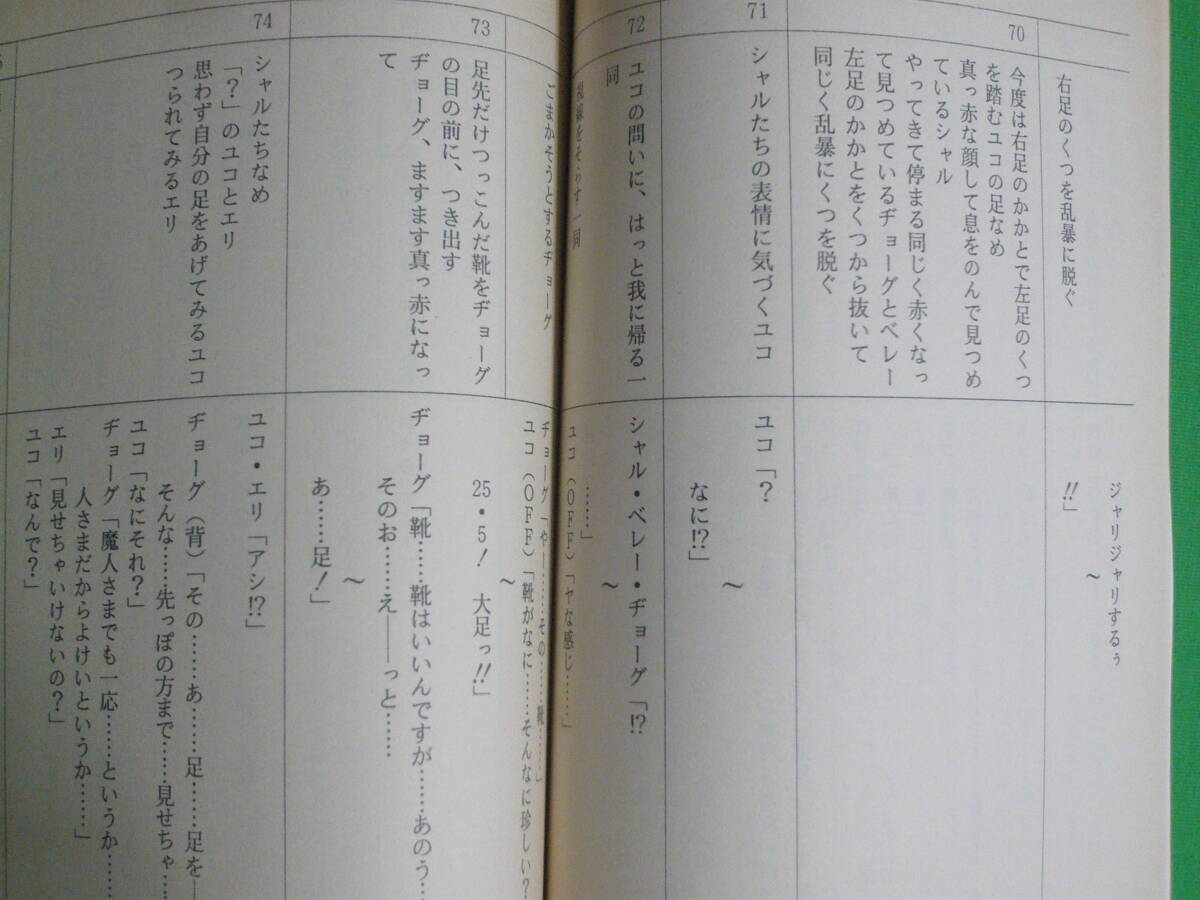 右足のくつを乱暴に脱ぐ
ジャリジャリするぅ
〜
!!」
70
今度は右足のかかとで左足のくつ
を踏むユコの足なめ
真っ赤な顔して息をのんで見つめ
ているシャル
やってきて停まる同じく赤くなっ
て見つめているヂョーグとベレー
左足のかかとをくつから抜いて
同じく乱暴にくつを脱ぐ
71
シャルたちの表情に気づくユコ
ユコ「?
〜
なに!?」
72
ユコの問いに、はっと我に帰る一
同
シャル・ベレー・ヂョーグ「!?
〜
……」
視線をそらす一同
ユコ(OFF)「ヤな感じ……」
ごまかそうとするヂョーグ
ヂョーグ「やー……その……靴……」
ユコ(OFF)「靴がなに……そんなに珍しい?
〜
25・5! 大足っ!!」
73
足先だけつっこんだ靴をヂョーグ
の目の前に、つき出す
ヂョーグ、ますます真っ赤になっ
て
ヂョーグ「靴……靴はいいんですが……あのう…
そのお……え——っと……
〜
あ……足!」
74
シャルたちなめ
「?」のユコとエリ
思わず自分の足をあげてみるユコ
つられてみるエリ
ユコ・エリ「アシ!?」
ヂョーグ(背)「その……あ……足……足を—
そんな……先っぽの方まで……見せちゃ…
ユコ「なにそれ?」
ヂョーグ「魔人さまでも一応……というか……
人さまだからよけいというか……」
エリ「見せちゃいけないの?」
ユコ「なんで?」